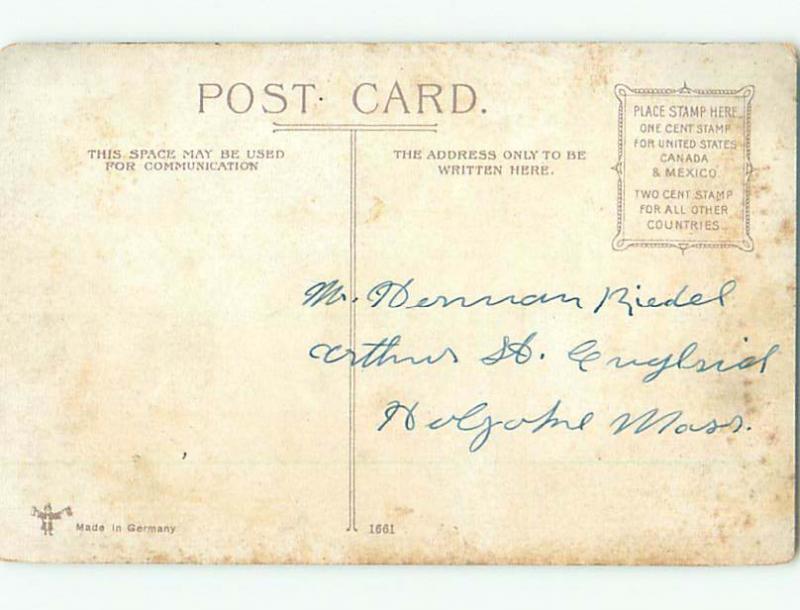 POST CARD.
THIS SPACE MAY BE USED
FOR COMMUNICATION
THE ADDRESS ONLY TO BE
WRITTEN HERE.
PLACE STAMP HERE
ONE CENT STAMP
FOR UNITED STATES
CANADA
& MEXICO.
TWO CENT STAMP
FOR ALL OTHER
COUNTRIES.
Mr. Herman Riedel
Arthur St.
Holyoke Mass.
Made in Germany
1661